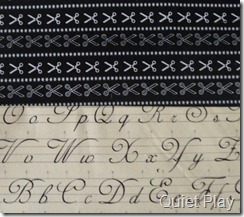 O o P p Q q R r S s
V v W w X x Y y Z
B b C c D d E e F f
Quiet Play